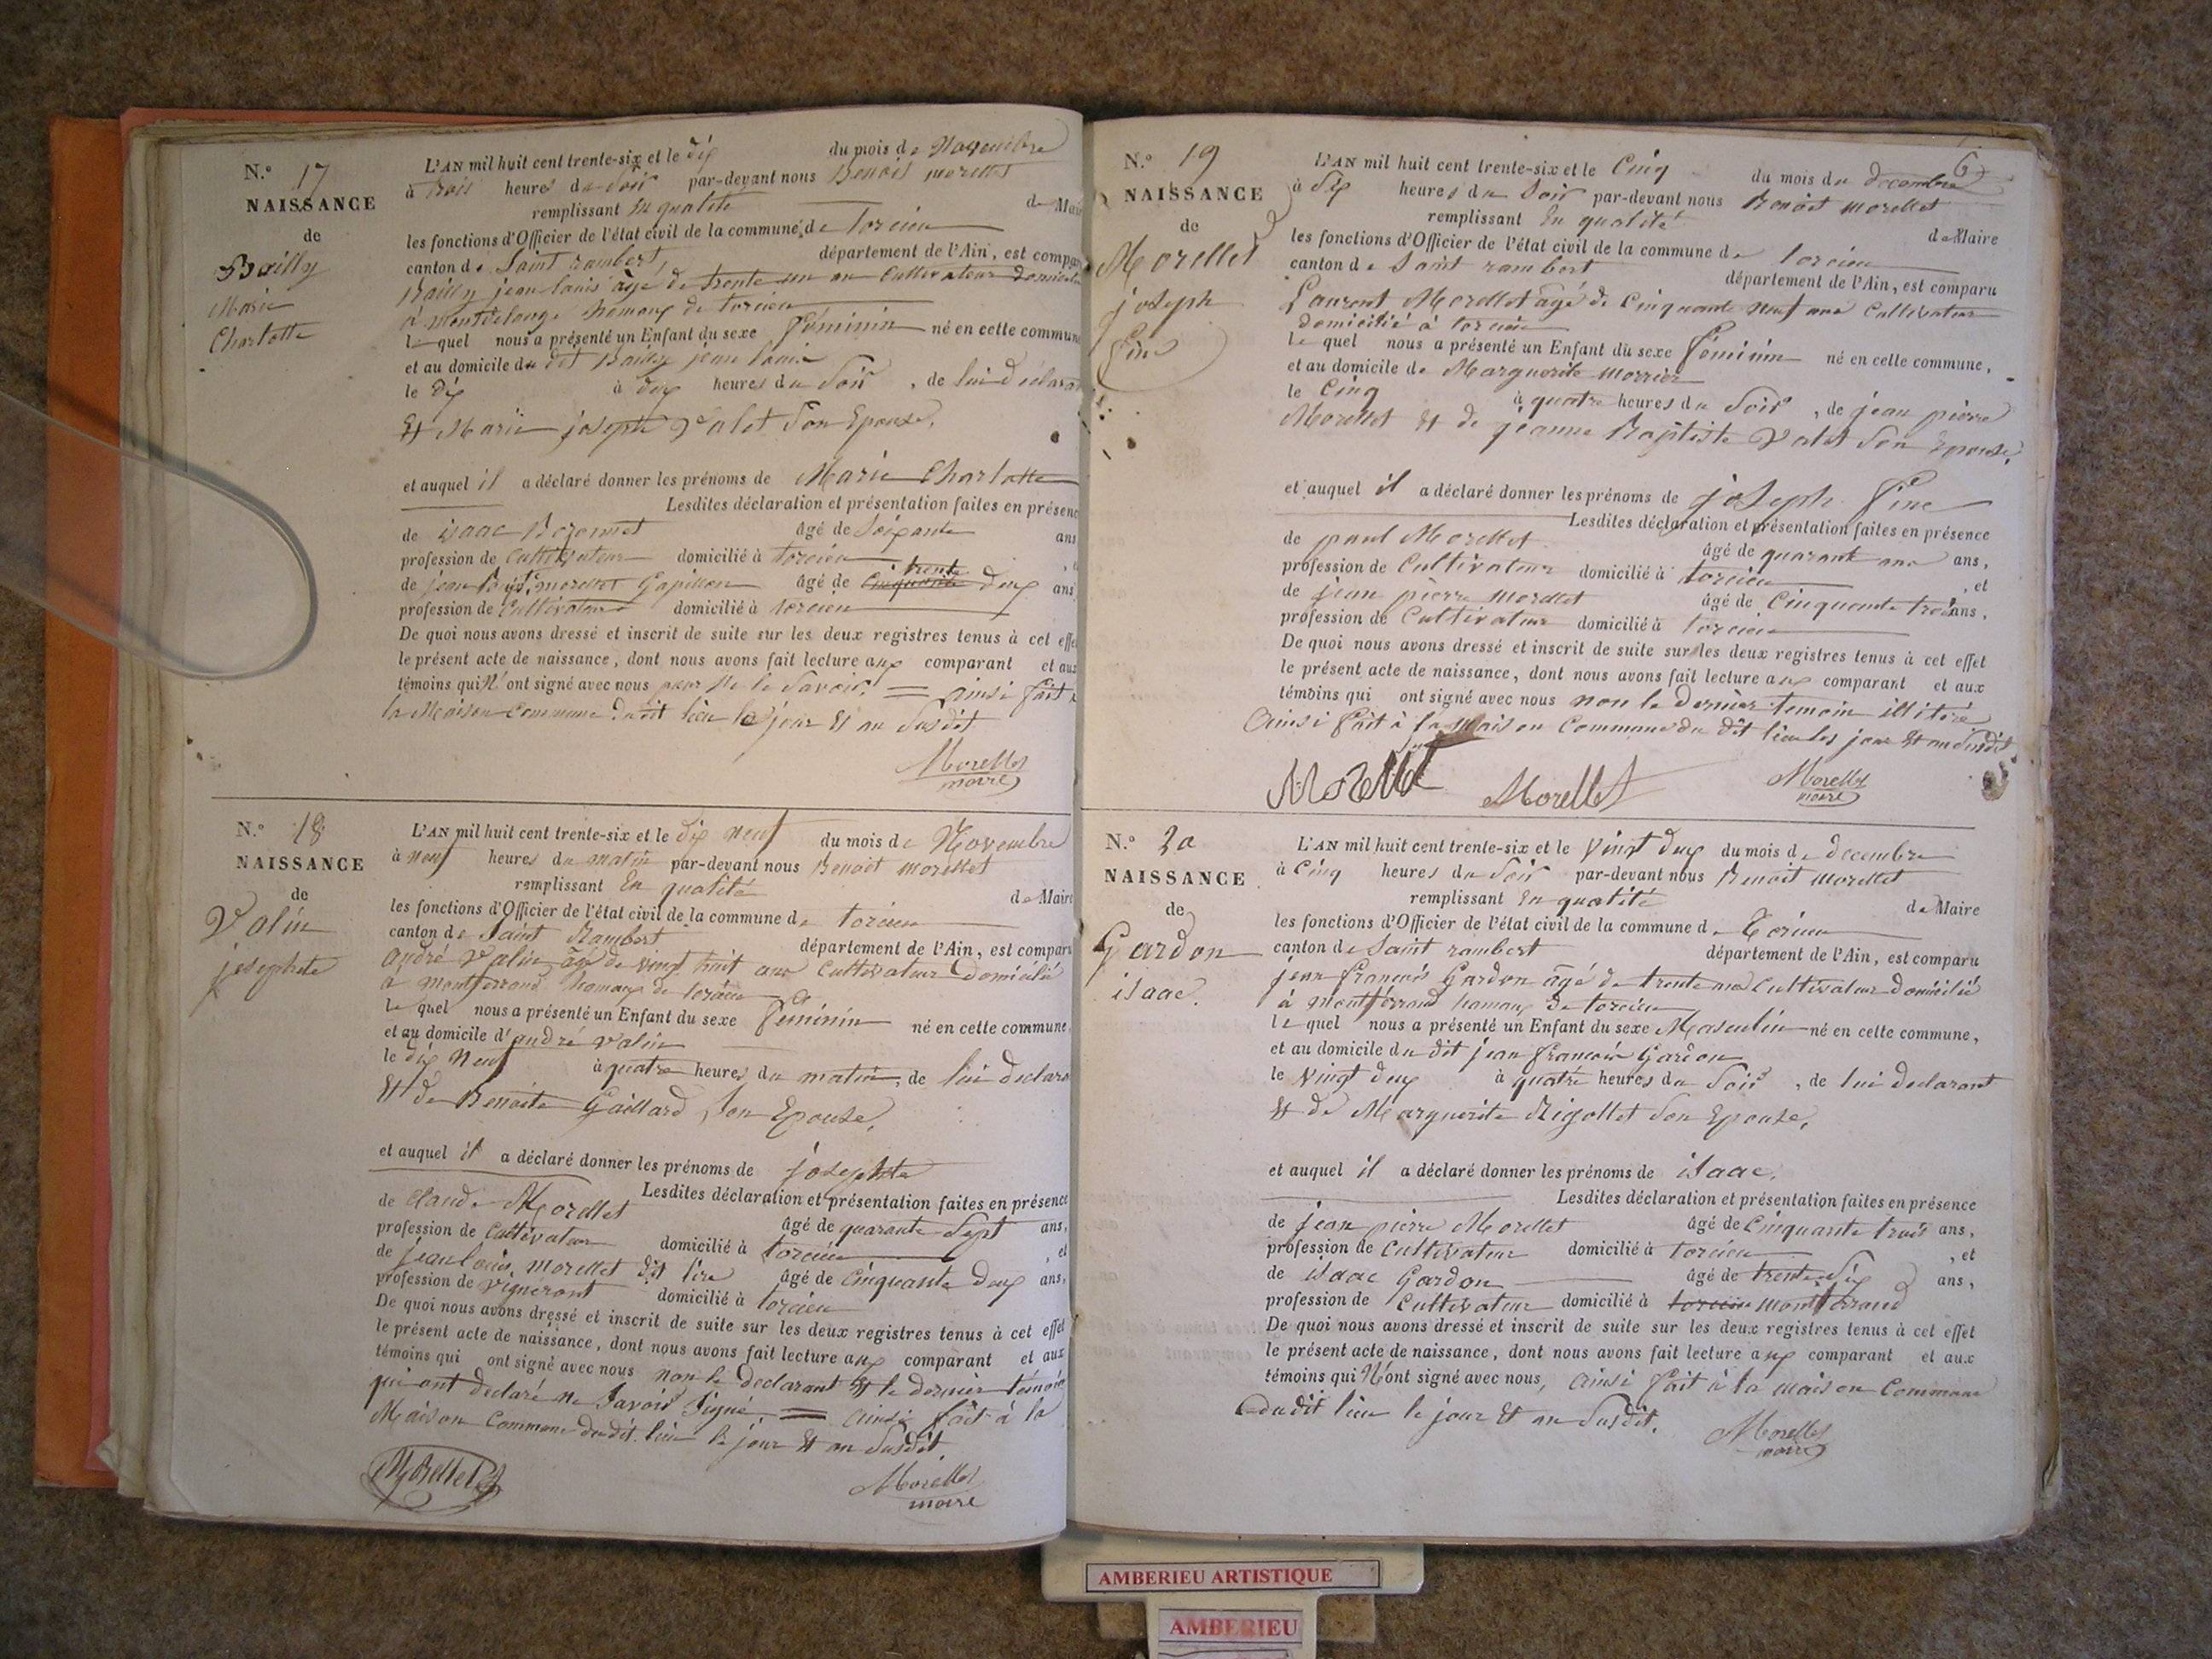 N.° 17
NAISSANCE
de
Bailly
Marie
Charlotte
L'AN mil huit cent trente-six et le dix du mois de Novembre
à trois heures du Soir par-devant nous Benoit morellet
remplissant En qualité de Mair
les fonctions d'Officier de l'état civil de la commune de torcieu
canton de Saint rambert, département de l'Ain, est compar
Bailly jean louis âgé de trente un an Cultivateur Domicilié
à montdelange hamaux de torcieu
le quel nous a présenté un Enfant du sexe féminin né en cette commun
et au domicile du dit Bailly jean louis
le dix à deux heures du Soir, de lui déclarant
Et Marie joseph Valet Son Epouse.
et auquel il a déclaré donner les prénoms de Marie Charlotte
Lesdites déclaration et présentation faites en présenc
de isaac âgé de Soixante ans
profession de Cultivateur domicilié à torcieu
de jean bapt.te morellet Gapillon âgé de cinquante trente deux ans
profession de Cultivateur domicilié à torcieu
De quoi nous avons dressé et inscrit de suite sur les deux registres tenus à cet effe
le présent acte de naissance, dont nous avons fait lecture aux comparant et aux
témoins qui N'ont signé avec nous pour ne le Savoir. = ainsi fait à
la Maison Commune dudit lieu le jour Et an Susdit
Morellet
maire
N.° 18
NAISSANCE
de
Valin
josephte
L'AN mil huit cent trente-six et le dix neuf du mois de Novembre
à neuf heures du matin par-devant nous Benoit morellet
remplissant En qualité de Maire
les fonctions d'Officier de l'état civil de la commune de torcieu
canton de Saint Rambert département de l'Ain, est comparu
André Valin âgé de vingt huit ans Cultivateur Domicilié
a montferrand hamaux de torcieu
le quel nous a présenté un Enfant du sexe féminin né en cette commune
et au domicile d'andré valin
le dix Neuf à quatre heures du matin, de lui declarant
Et de Benoite Gaillard Son Epouse,
et auquel il a déclaré donner les prénoms de josephte
Lesdites déclaration et présentation faites en présence
de claude Morellet âgé de quarante Sept ans,
profession de Cultivateur domicilié à torcieu, et
de jean louis morellet dit lira âgé de Cinquante deux ans,
profession de Vigneront domicilié à torcieu
De quoi nous avons dressé et inscrit de suite sur les deux registres tenus à cet effet
le présent acte de naissance, dont nous avons fait lecture aux comparant et aux
témoins qui ont signé avec nous non le declarant Et le dernier témoin
qui ont declaré ne Savoir Signe = ainsi fait à la
Maison Commune dudit lieu le jour Et an Susdit.
Morellet
Morellet
maire
6
N.° 19
NAISSANCE
de
Morellet
joseph
fine
L'AN mil huit cent trente-six et le Cinq du mois du decembre
à Six heures du Soir par-devant nous Benoit morellet
remplissant En qualité de Maire
les fonctions d'Officier de l'état civil de la commune de torcieu
canton de Saint rambert département de l'Ain, est comparu
Laurent Morellet âgé de Cinquante neuf ans Cultivateur
domicilié à torcieu
le quel nous a présenté un Enfant du sexe féminin né en cette commune,
et au domicile de Marguerite morrier
le Cinq à quatre heures du Soir, de jean pierre
Morellet Et de jeanne Baptiste Valet Son Epouse,
et auquel il a déclaré donner les prénoms de joSeph fine
Lesdites déclaration et présentation faites en présence
de paul Morellet âgé de quarante ans ans,
profession de Cultivateur domicilié à torcieu, et
de jean pierre morellet âgé de Cinquante trois ans,
profession de Cultivateur domicilié à torcieu
De quoi nous avons dressé et inscrit de suite sur les deux registres tenus à cet effet
le présent acte de naissance, dont nous avons fait lecture aux comparant et aux
témoins qui ont signé avec nous non le Dernier temoin illitéré
Ainsi fait à la Maison Commune du dit lieu les jour Et an Susdit
Morellet Morellet Morellet
maire
N.° 20
NAISSANCE
de
Gardon
isaac.
L'AN mil huit cent trente-six et le vingt deux du mois de decembre
à Cinq heures du Soir par-devant nous Benoit morellet
remplissant En qualité de Maire
les fonctions d'Officier de l'état civil de la commune de torcieu
canton de Saint rambert département de l'Ain, est comparu
jean françois Gardon âgé de trente ans Cultivateur domicilié
à montférrand hamaux de torcieu
le quel nous a présenté un Enfant du sexe Masculin né en cette commune,
et au domicile du dit jean françois Gardon
le vingt deux à quatre heures du Soir, de lui declarant
Et de Marguerite Rigollet Son Epouse,
et auquel il a déclaré donner les prénoms de isaac.
Lesdites déclaration et présentation faites en présence
de jean pierre Morellet âgé de Cinquante trois ans,
profession de Cultivateur domicilié à torcieu, et
de isaac Gardon âgé de trente Six ans,
profession de Cultivateur domicilié à torcieu montferrand
De quoi nous avons dressé et inscrit de suite sur les deux registres tenus à cet effet
le présent acte de naissance, dont nous avons fait lecture aux comparant et aux
témoins qui N'ont signé avec nous, ainsi fait à la maison Commune
dudit lieu le jour Et an Susdit.
Morellet
maire
AMBERIEU ARTISTIQUE
AMBERIEU